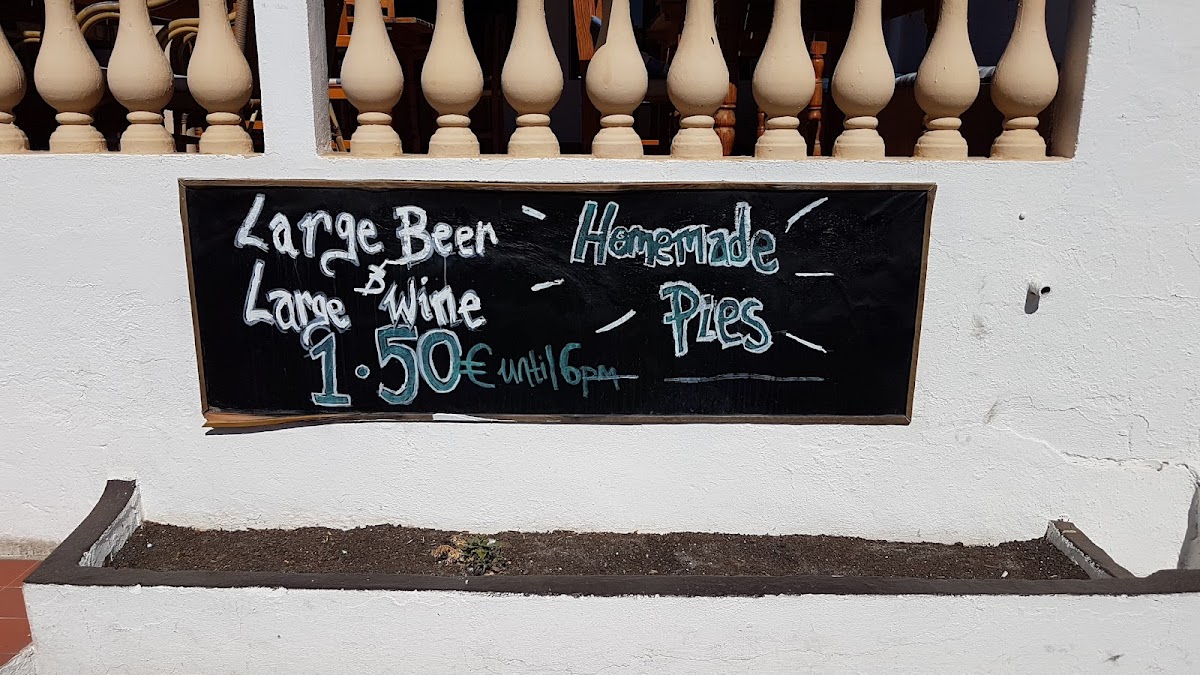 Large Beer
&
Large Wine
1.50€ until 6pm
Homemade
Pies